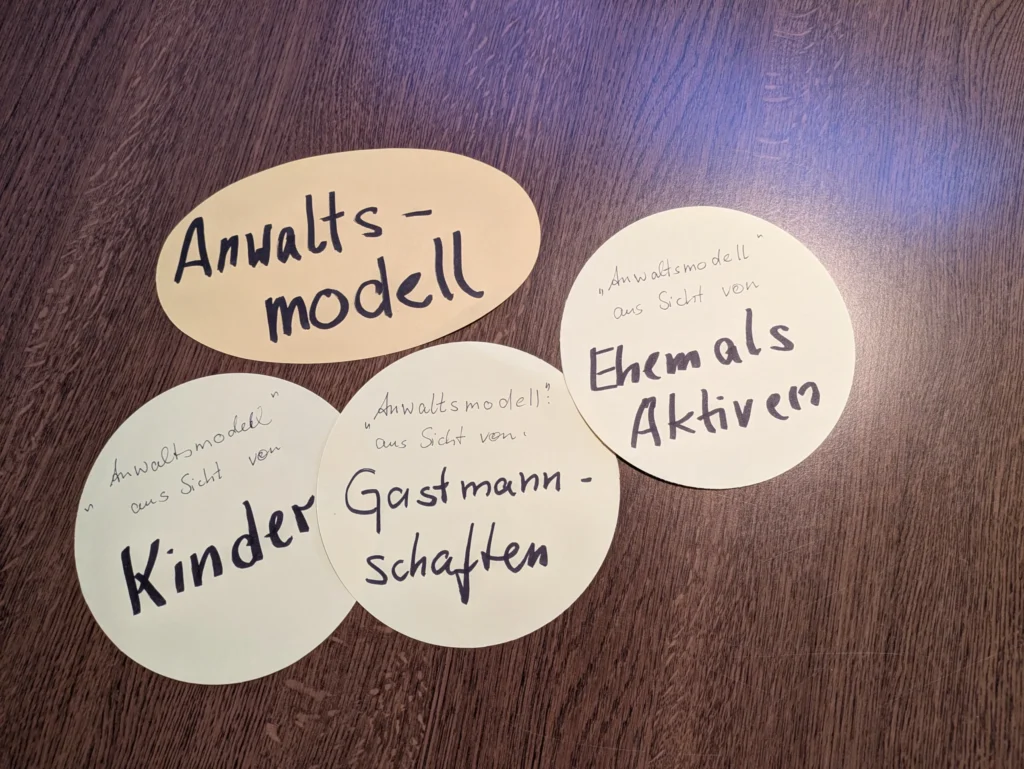 Anwalts-
modell
„Anwaltsmodell"
aus Sicht von
Kinder
„Anwaltsmodell":
aus Sicht von:
Gastmann-
schaften
„Anwaltsmodell"
aus Sicht von
Ehemals
Aktiven